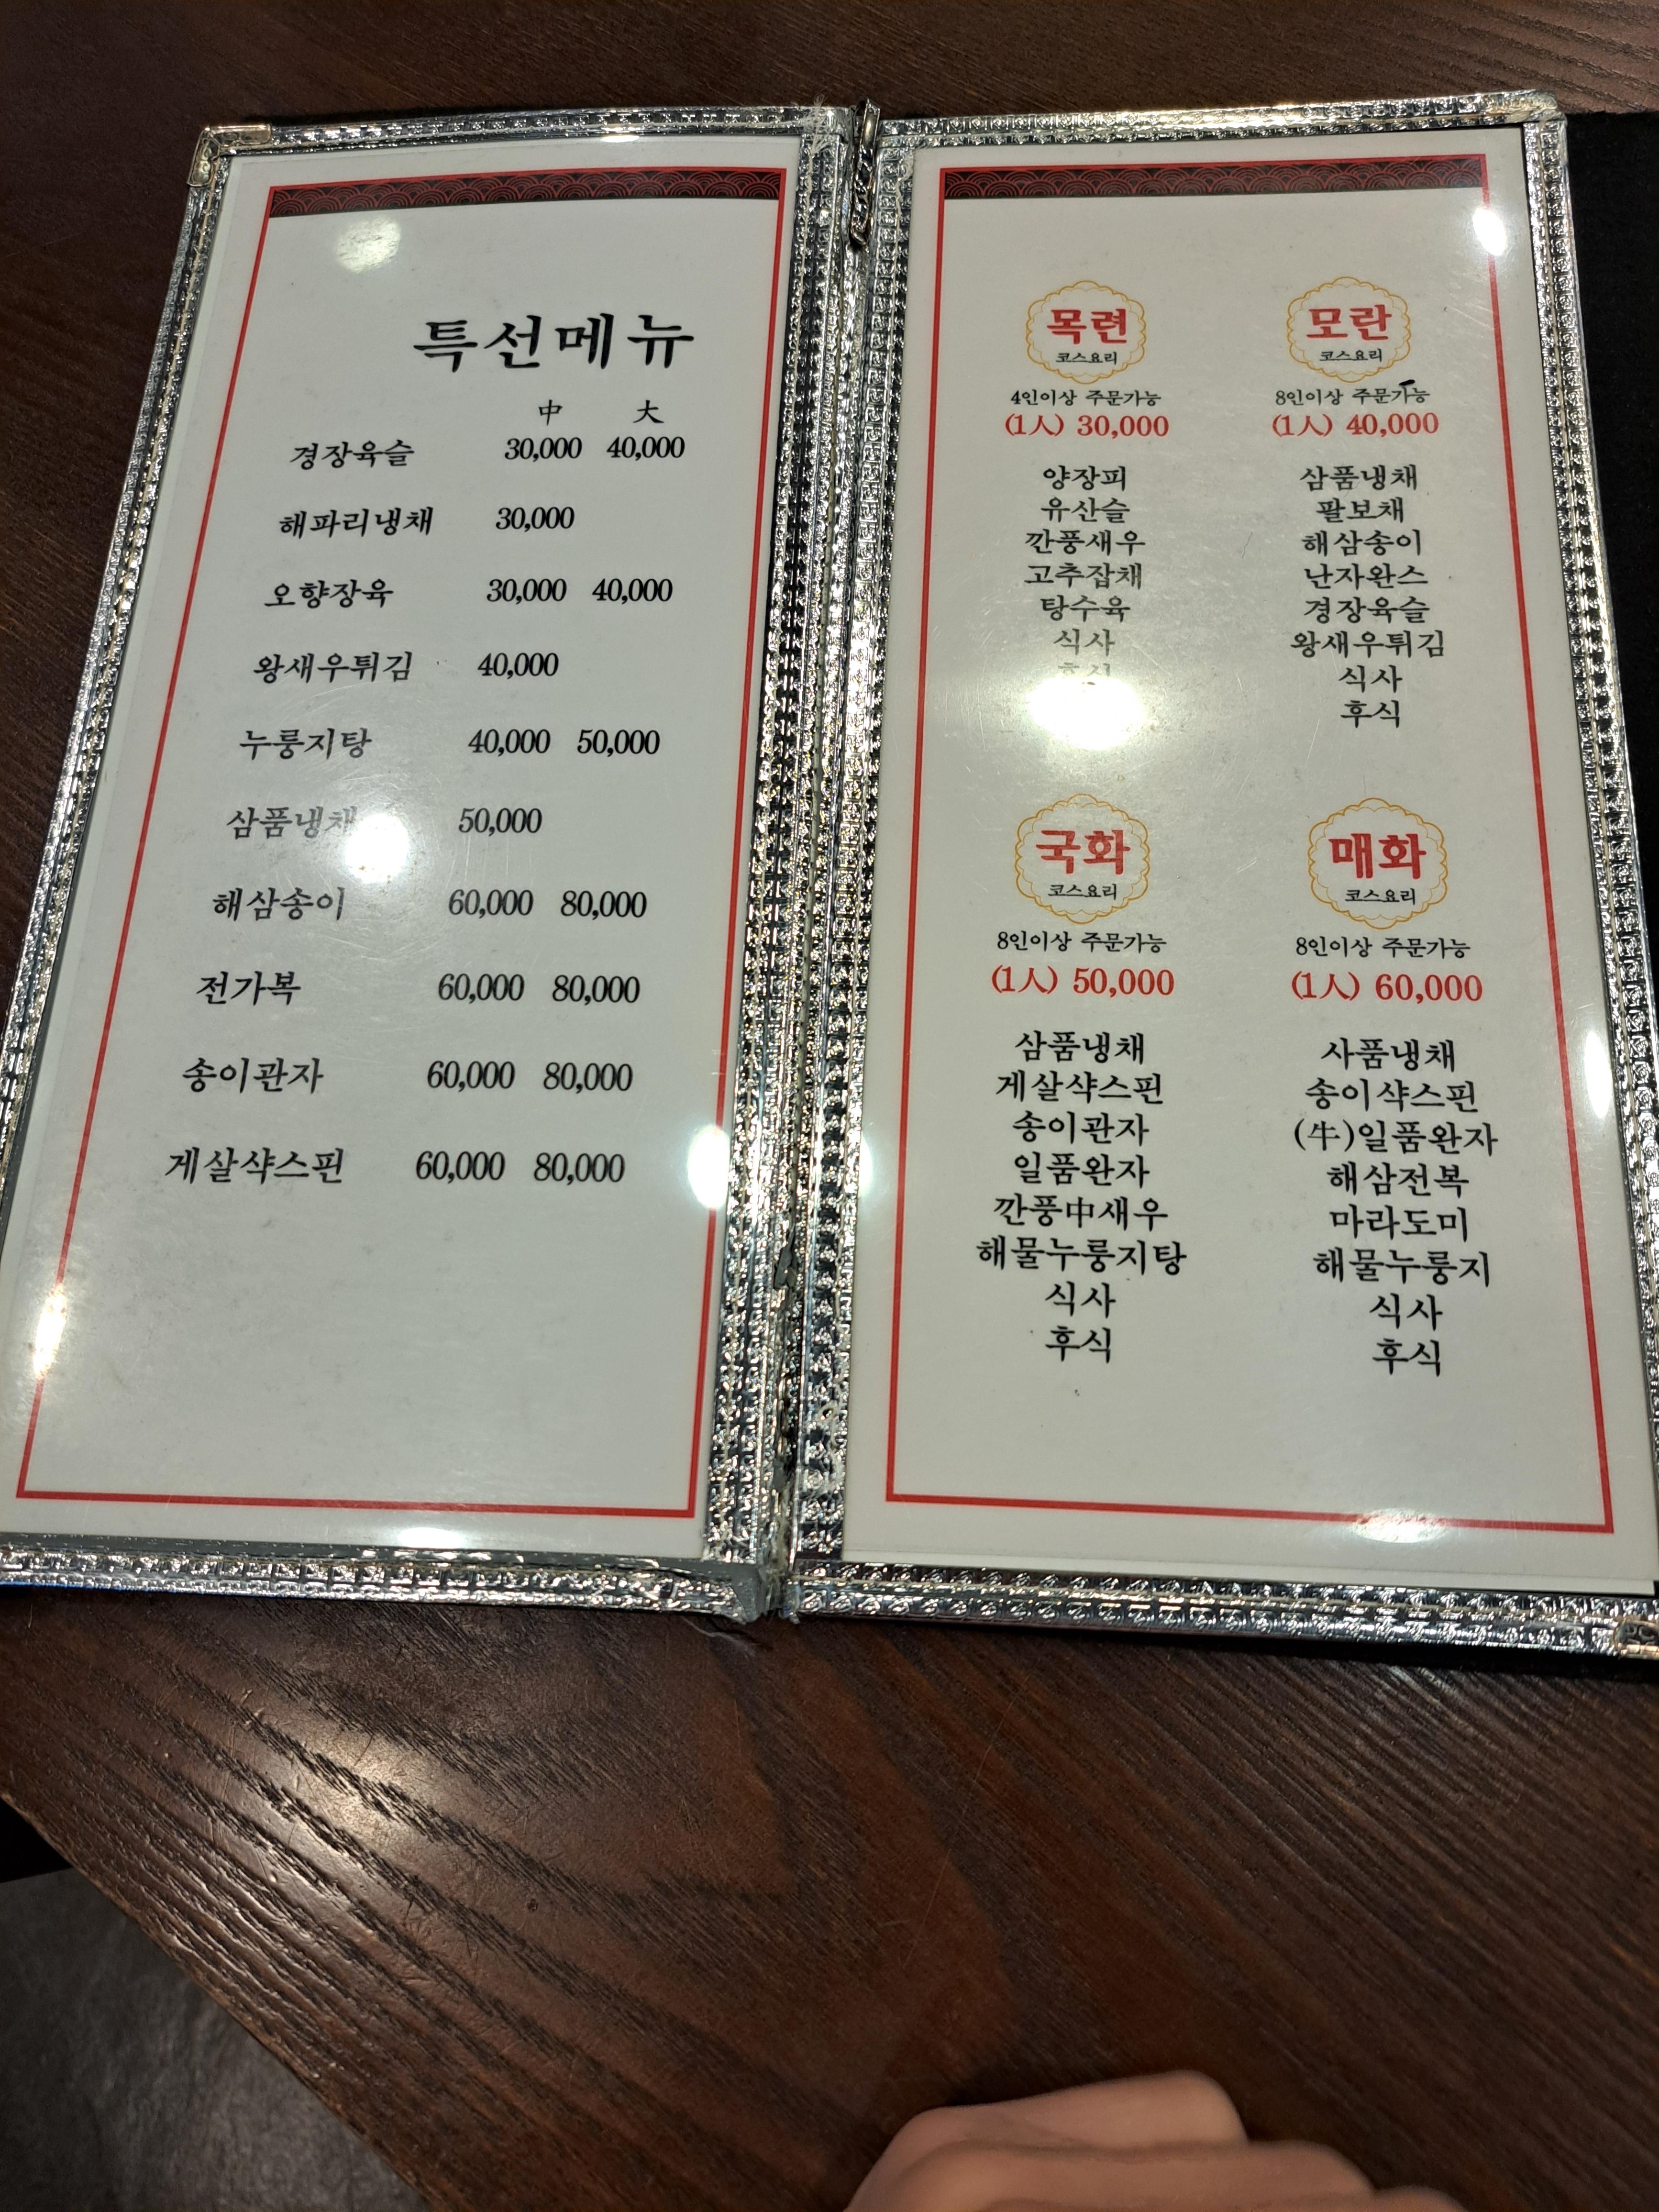 특선메뉴
中 大
경장육슬 30,000 40,000
해파리냉채 30,000
오향장육 30,000 40,000
왕새우튀김 40,000
누룽지탕 40,000 50,000
삼품냉채 50,000
해삼송이 60,000 80,000
전가복 60,000 80,000
송이관자 60,000 80,000
게살샥스핀 60,000 80,000
목련
코스요리
4인이상 주문가능
(1人) 30,000
양장피
유산슬
깐풍새우
고추잡채
탕수육
식사
후식
모란
코스요리
8인이상 주문가능
(1人) 40,000
삼품냉채
팔보채
해삼송이
난자완스
경장육슬
왕새우튀김
식사
후식
국화
코스요리
8인이상 주문가능
(1人) 50,000
삼품냉채
게살샥스핀
송이관자
일품완자
깐풍中새우
해물누룽지탕
식사
후식
매화
코스요리
8인이상 주문가능
(1人) 60,000
사품냉채
송이샥스핀
(牛)일품완자
해삼전복
마라도미
해물누룽지
식사
후식